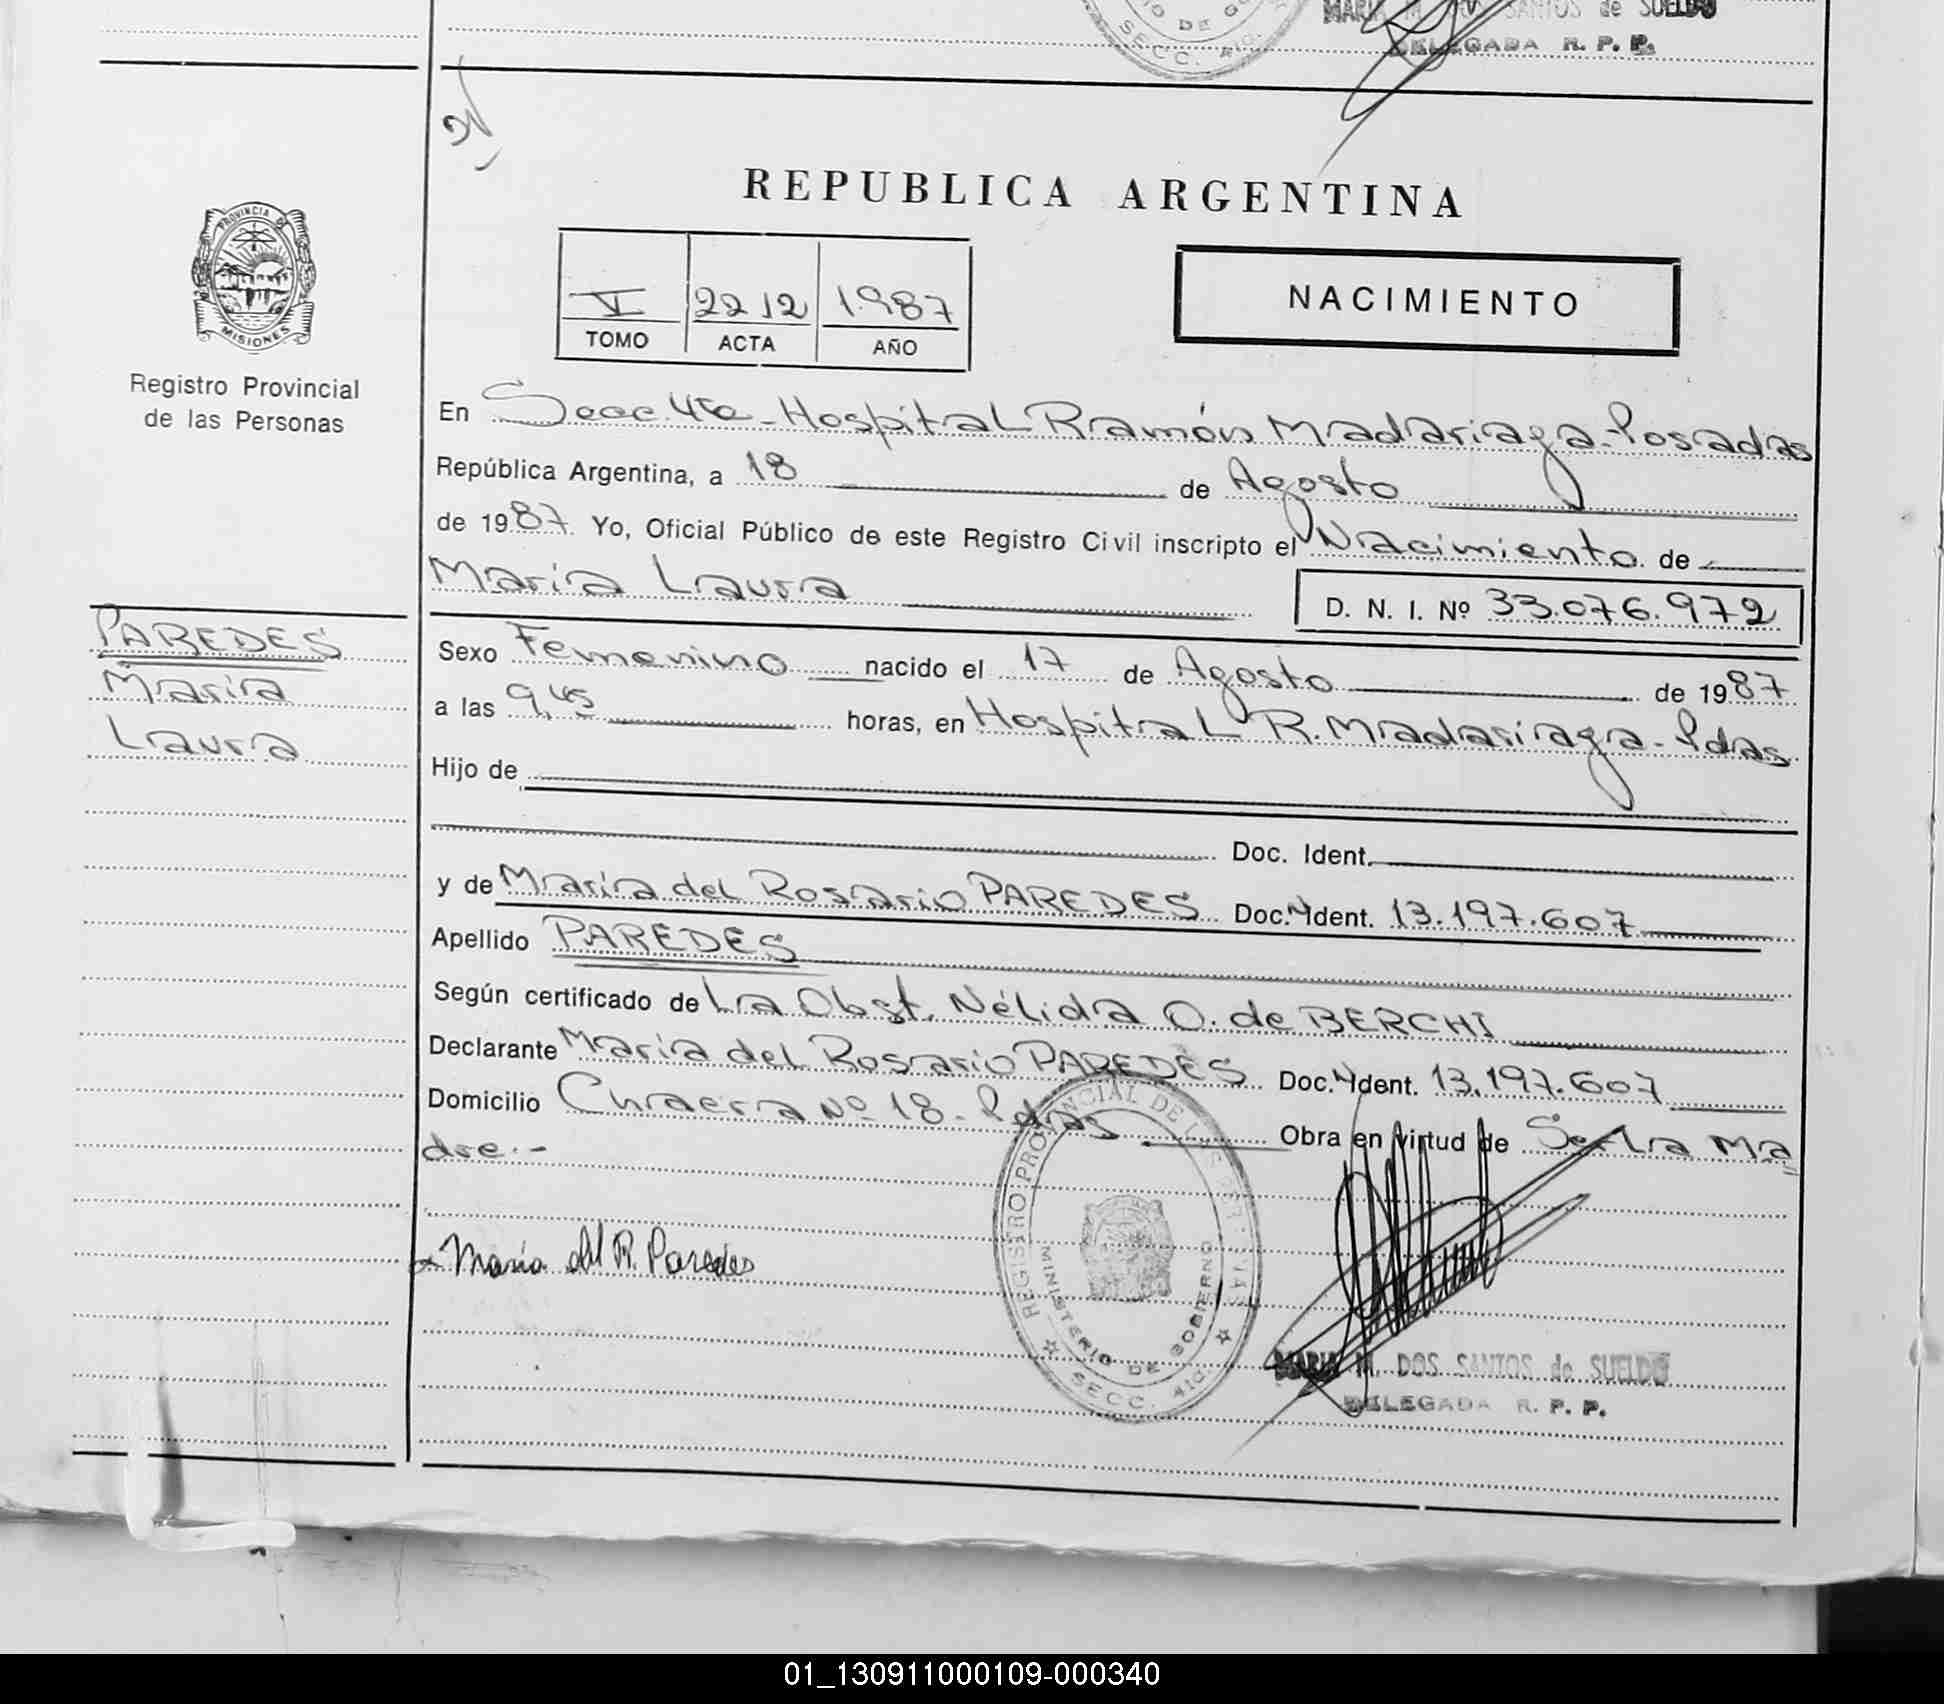 MARIA M. DOS SANTOS de SUELDO
DELEGADA R. P. P.
SECC. 4ta.
REPUBLICA ARGENTINA
PROVINCIA DE
MISIONES
Registro Provincial
de las Personas
V 2212 1987
TOMO ACTA AÑO
NACIMIENTO
En Secc. 4ta - Hospital Ramón Madariaga - Posadas
República Argentina, a 18 de Agosto
de 1987. Yo, Oficial Público de este Registro Civil inscripto el Nacimiento de
María Laura D. N. I. Nº 33.076.972
PAREDES
María
Laura
Sexo Femenino nacido el 17 de Agosto de 1987
a las 9,45 horas, en Hospital R. Madariaga - Pdas.
Hijo de
Doc. Ident.
y de María del Rosario PAREDES Doc. Ident. 13.197.607
Apellido PAREDES
Según certificado de La Obst. Nélida O. de BERCHI
Declarante María del Rosario PAREDES Doc. Ident. 13.197.607
Domicilio Chacra Nº 18 - Pdas Obra en virtud de Ser La Ma
dre.-
María del R. Paredes
REGISTRO PROVINCIAL DE LAS PERSONAS
MINISTERIO DE GOBIERNO
SECC. 4ta.
MARIA M. DOS SANTOS de SUELDO
DELEGADA R. P. P.
01_130911000109-000340